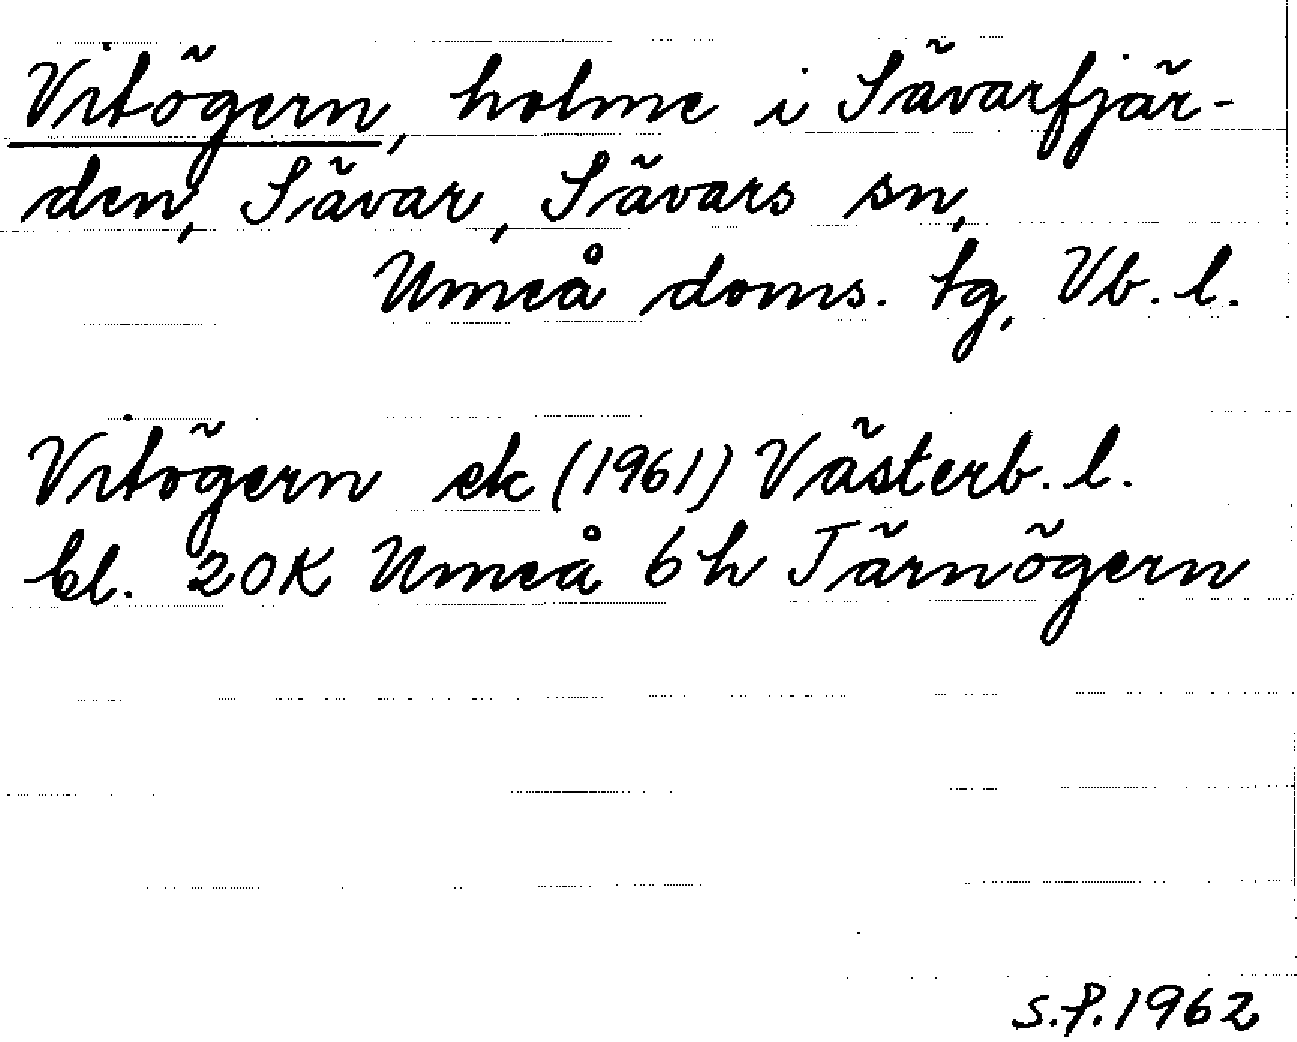 Vitögern, holme i Sävarfjär-
den, Sävar, Sävars sn,
Umeå doms. tg, Vb. l.
Vitögern ek (1961) Västerb. l.
bl. 20K Umeå 6h Tärnögern
S.f. 1962